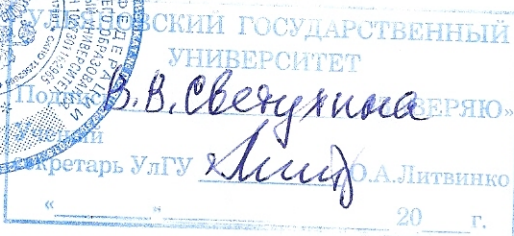 УЛЬЯНОВСКИЙ ГОСУДАРСТВЕННЫЙ
УНИВЕРСИТЕТ
Подпись В.В. Светухина ЗАВЕРЯЮ»
Ученый
секретарь УлГУ О.А.Литвинко
« » 20 г.